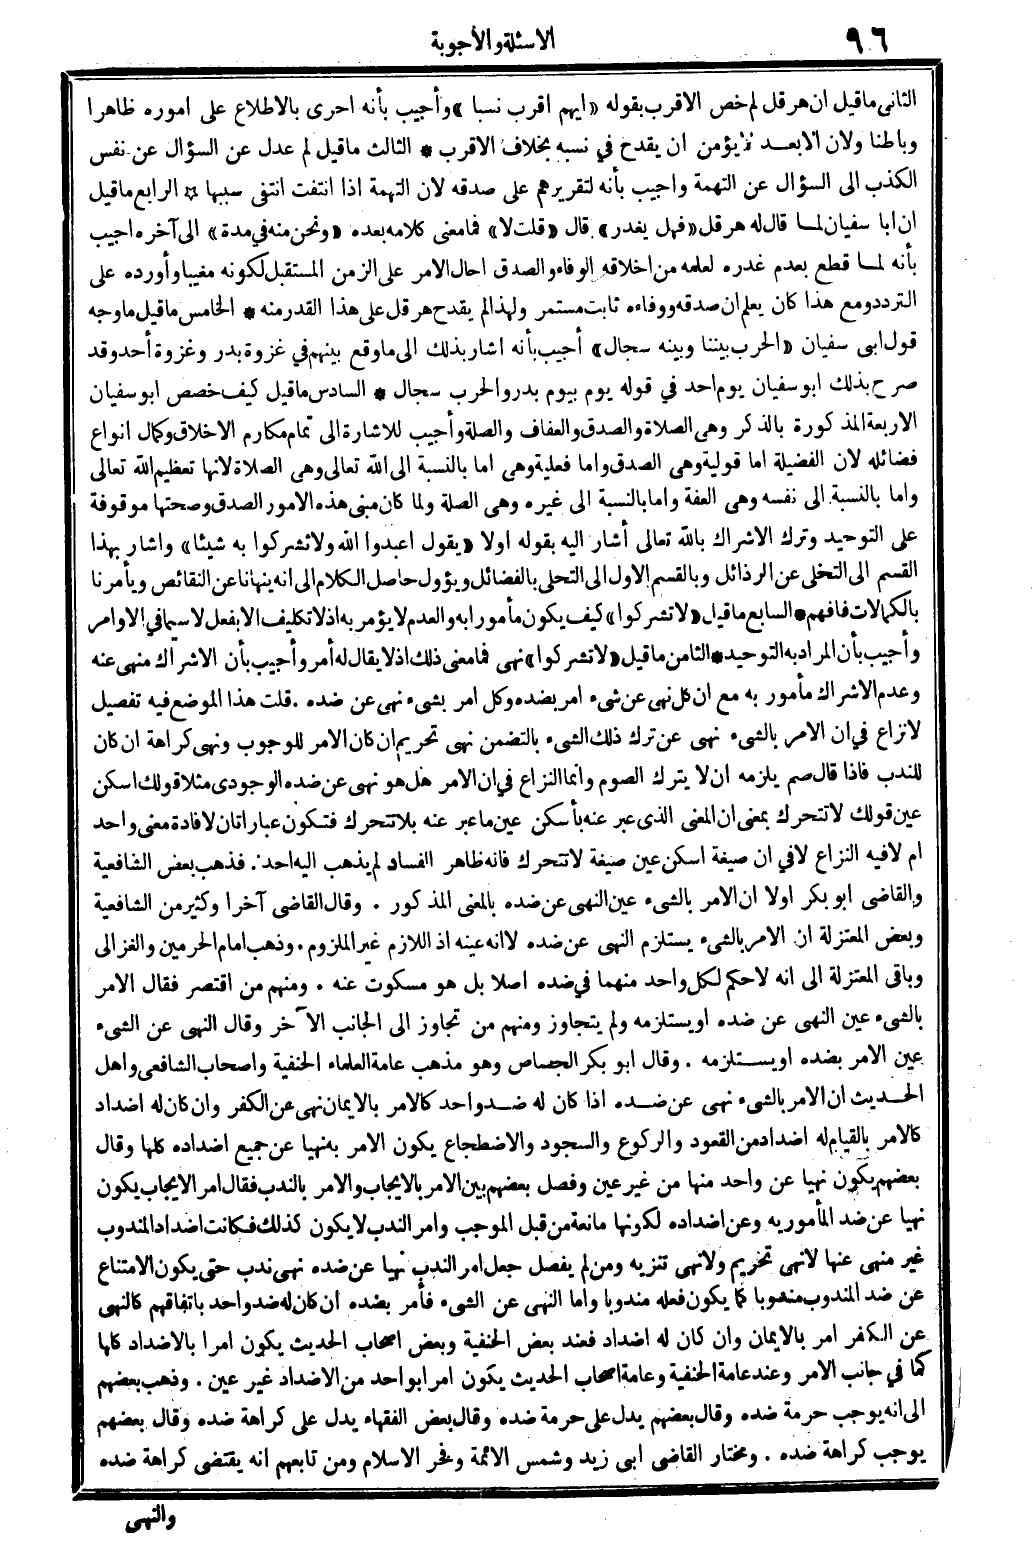 ٩٦
الاسئلة والأجوبة
الثانى ماقيل ان هرقل لم خص الاقرب بقوله «ايهم اقرب نسبا» وأجيب بأنه احرى بالاطلاع على اموره ظاهرا
وباطنا ولان الابعد لايؤمن ان يقدح في نسبه بخلاف الاقرب * الثالث ماقيل لم عدل عن السؤال عن نفس
الكذب الى السؤال عن التهمة واجيب بأنه لتقريرهم على صدقه لان التهمة اذا انتفت انتفى سببها * الرابع ماقيل
ان ابا سفيان لما قال له هرقل «فهل يغدر» قال «قلت لا» فمامعنى كلامه بعده «ونحن منه في مدة» الى آخره اجيب
بأنه لما قطع بعدم غدره لعلمه من اخلاقه الوفاء والصدق احال الامر على الزمن المستقبل لكونه مغيبا وأورده على
التردد ومع هذا كان يعلم ان صدقه ووفاءه ثابت مستمر ولهذا لم يقدح هرقل على هذا القدر منه * الخامس ماقيل ماوجه
قول ابى سفيان «الحرب بيننا وبينه سجال» أجيب بأنه اشار بذلك الى ماوقع بينهم في غزوة بدر وغزوة أحد وقد
صرح بذلك ابو سفيان يوم احد في قوله يوم بيوم بدر والحرب سجال * السادس ماقيل كيف خصص ابو سفيان
الاربعة المذكورة بالذكر وهى الصلاة والصدق والعفاف والصلة وأجيب للاشارة الى تمام مكارم الاخلاق وكمال انواع
فضائله لان الفضيلة اما قولية وهى الصدق واما فعلية وهى اما بالنسبة الى الله تعالى وهى الصلاة لانها تعظيم الله تعالى
واما بالنسبة الى نفسه وهى العفة واما بالنسبة الى غيره وهى الصلة ولما كان مبنى هذه الامور الصدق وصحتها موقوفة
على التوحيد وترك الاشراك بالله تعالى أشار اليه بقوله اولا «يقول اعبدوا الله ولا تشركوا به شيئا» واشار بهذا
القسم الى التخلى عن الرذائل وبالقسم الاول الى التحلى بالفضائل ويؤول حاصل الكلام الى انه ينهانا عن النقائص ويأمرنا
بالكمالات فافهم * السابع ماقيل «لا تشركوا» كيف يكون مأمورا به والعدم لا يؤمر به اذ لا تكليف الا بفعل لاسيما في الاوامر
وأجيب بأن المراد به التوحيد * الثامن ماقيل «لا تشركوا» نهى فمامعنى ذلك اذ لا يقال له أمر وأجيب بأن الاشراك منهى عنه
وعدم الاشراك مأمور به مع ان كل نهى عن شىء امر بضده وكل امر بشىء نهى عن ضده . قلت هذا الموضع فيه تفصيل
لا نزاع في ان الامر بالشىء نهى عن ترك ذلك الشىء بالتضمن نهى تحريم ان كان الامر للوجوب ونهى كراهة ان كان
للندب فاذا قال صم يلزمه ان لا يترك الصوم وانما النزاع في ان الامر هل هو نهى عن ضده الوجودى مثلا قولك اسكن
عين قولك لا تتحرك بمعنى ان المعنى الذى عبر عنه بأسكن عين ما عبر عنه بلا تتحرك فتكون عبارتان لافادة معنى واحد
ام لا فيه النزاع لا في ان صيغة اسكن عين صيغة لا تتحرك فانه ظاهر الفساد لم يذهب اليه احد . فذهب بعض الشافعية
والقاضى ابو بكر اولا ان الامر بالشىء عين النهى عن ضده بالمعنى المذكور . وقال القاضى آخرا وكثير من الشافعية
وبعض المعتزلة ان الامر بالشىء يستلزم النهى عن ضده لا انه عينه اذ اللازم غير الملزوم . وذهب امام الحرمين والغزالى
وباقى المعتزلة الى انه لا حكم لكل واحد منهما في ضده اصلا بل هو مسكوت عنه . ومنهم من اقتصر فقال الامر
بالشىء عين النهى عن ضده او يستلزمه ولم يتجاوز ومنهم من تجاوز الى الجانب الآخر وقال النهى عن الشىء
عين الامر بضده او يستلزمه . وقال ابو بكر الجصاص وهو مذهب عامة العلماء الحنفية واصحاب الشافعى واهل
الحديث ان الامر بالشىء نهى عن ضده اذا كان له ضد واحد كالامر بالايمان نهى عن الكفر وان كان له اضداد
كالامر بالقيام له اضداد من القعود والركوع والسجود والاضطجاع يكون الامر به نهيا عن جميع اضداده كلها وقال
بعضهم يكون نهيا عن واحد منها من غير عين وفصل بعضهم بين الامر بالايجاب والامر بالندب فقال امر الايجاب يكون
نهيا عن ضد المأمور به وعن اضداده لكونها مانعة من قبل الموجب وامر الندب لا يكون كذلك فكانت اضداد المندوب
غير منهى عنها لا نهى تحريم ولا نهى تنزيه ومن لم يفصل جعل امر الندب نهيا عن ضده نهى ندب حتى يكون الامتناع
عن ضد المندوب مندوبا كما يكون فعله مندوبا واما النهى عن الشىء فأمر بضده ان كان له ضد واحد باتفاقهم كالنهى
عن الكفر امر بالايمان وان كان له اضداد فعند بعض الحنفية وبعض اصحاب الحديث يكون امرا بالاضداد كلها
كما في جانب الامر وعند عامة الحنفية وعامة اصحاب الحديث يكون امرا بواحد من الاضداد غير عين . وذهب بعضهم
الى انه يوجب حرمة ضده وقال بعضهم يدل على حرمة ضده وقال بعض الفقهاء يدل على كراهة ضده وقال بعضهم
يوجب كراهة ضده . ومختار القاضى ابى زيد وشمس الائمة وفخر الاسلام ومن تابعهم انه يقتضى كراهة ضده
والنهى